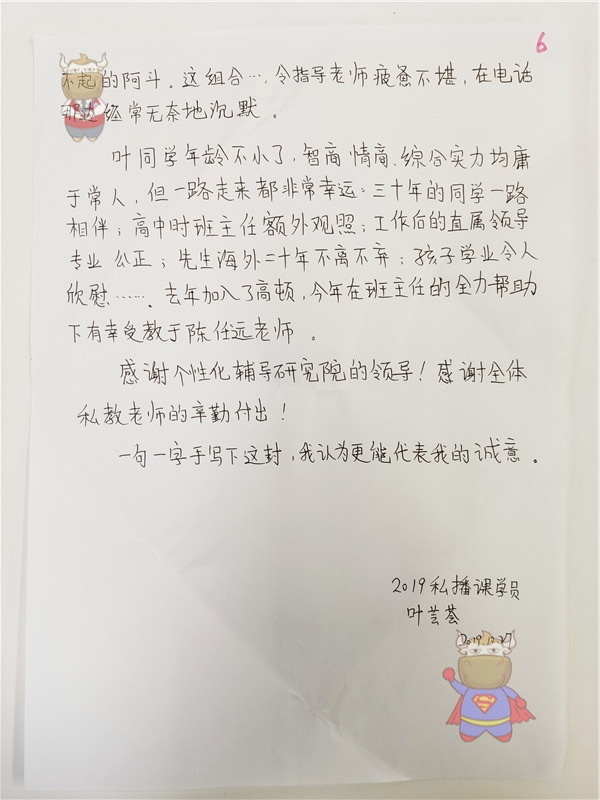 6
不起的阿斗。这组合…,令指导老师疲惫不堪,在电话
那边经常无奈地沉默。
叶同学年龄不小了,智商、情商、综合实力均庸
于常人,但一路走来都非常幸运:三十年的同学一路
相伴;高中时班主任额外观照;工作后的直属领导
专业、公正;先生海外二十年不离不弃;孩子学业令人
欣慰……。去年加入了高顿,今年在班主任的全力帮助
下有幸受教于陈任远老师。
感谢个性化辅导研究院的领导!感谢全体
私教老师的辛勤付出!
一句一字手写下这封,我认为更能代表我的诚意。
2019私播课学员
叶芸荟
2019.12.27